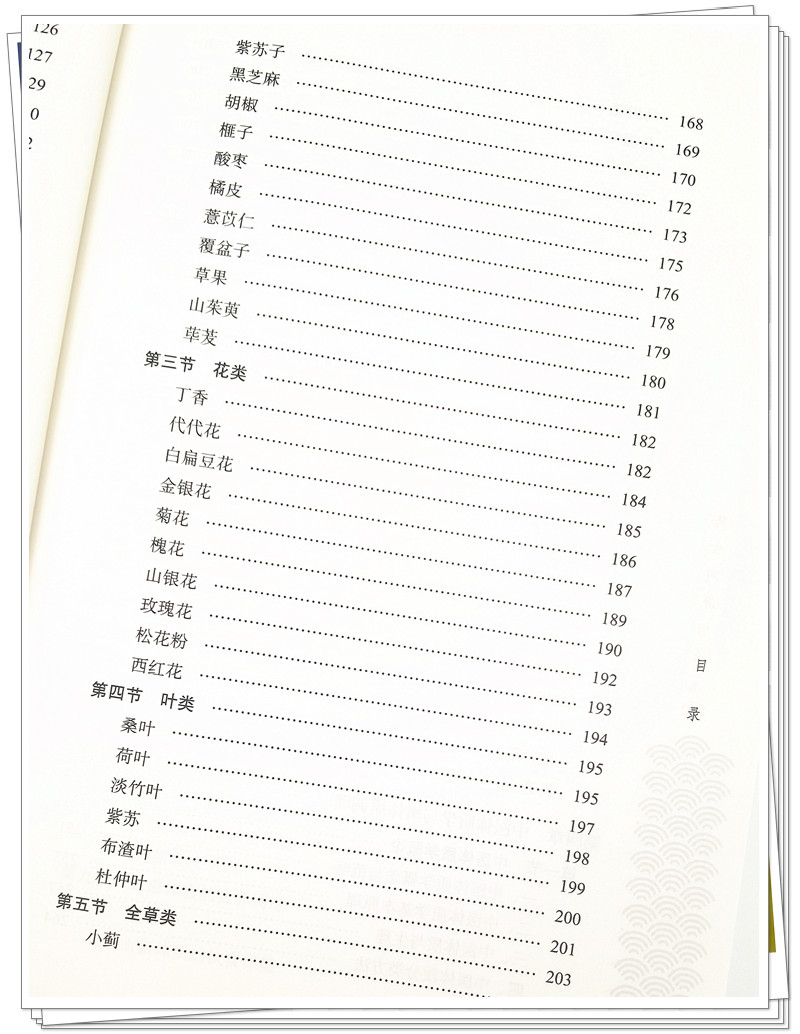 126
127
29
0
2
紫苏子 …… 168
黑芝麻 …… 169
胡椒 …… 170
榧子 …… 172
酸枣 …… 173
橘皮 …… 175
薏苡仁 …… 176
覆盆子 …… 178
草果 …… 179
山茱萸 …… 180
荜茇 …… 181
第三节 花类 …… 182
丁香 …… 182
代代花 …… 184
白扁豆花 …… 185
金银花 …… 186
菊花 …… 187
槐花 …… 189
山银花 …… 190
玫瑰花 …… 192
松花粉 …… 193
西红花 …… 194
第四节 叶类 …… 195
桑叶 …… 195
荷叶 …… 197
淡竹叶 …… 198
紫苏 …… 199
布渣叶 …… 200
杜仲叶 …… 201
第五节 全草类 …… 203
小蓟 ……
目录